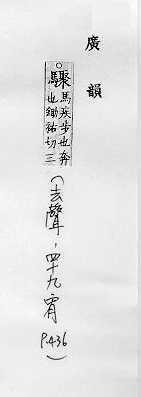 廣韻
驟馬疾步也奔
也鋤祐切三
(去聲,四十九宥
P.436)